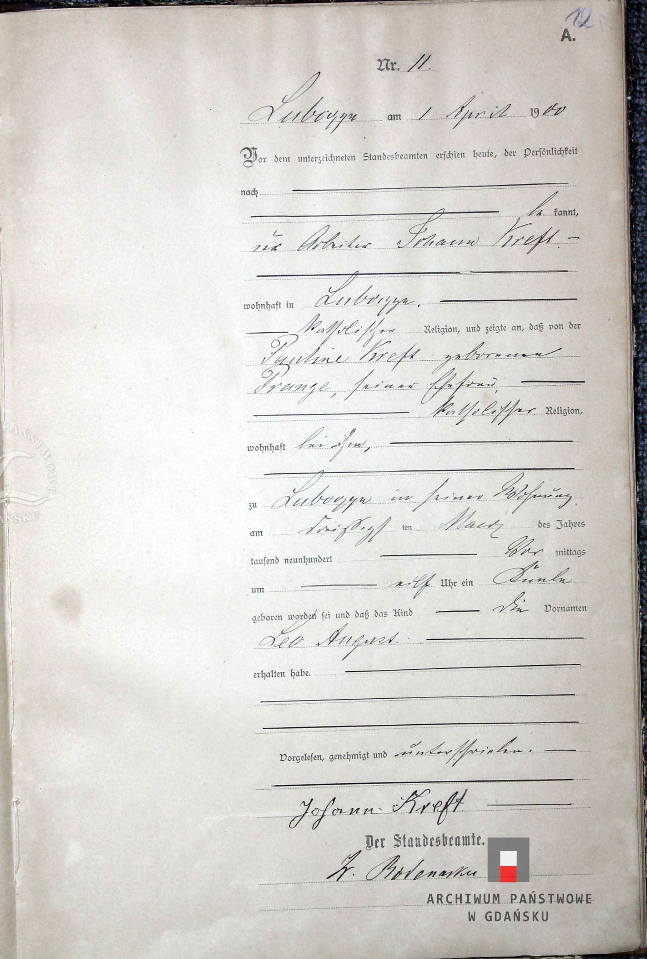 12
A.
Nr. 11.
am 1 April 1900
Vor dem unterzeichneten Standesbeamten erschien heute, der Persönlichkeit
nach
be kannt,
Arbeiter Johann Kreft
wohnhaft in
katholischer Religion, und zeigte an, daß von der
Pauline Kreft geborenen
Prange, seiner Ehefrau,
katholischer Religion,
wohnhaft bei ihm,
zu in seiner Wohnung
am ten Maerz des Jahres
tausend neunhundert Vor mittags
um eilf Uhr ein Knabe
geboren worden sei und daß das Kind die Vornamen
Leo August
erhalten habe.
Vorgelesen, genehmigt und unterschrieben.
Johann Kreft
Der Standesbeamte.
ARCHIWUM PAŃSTWOWE
W GDAŃSKU